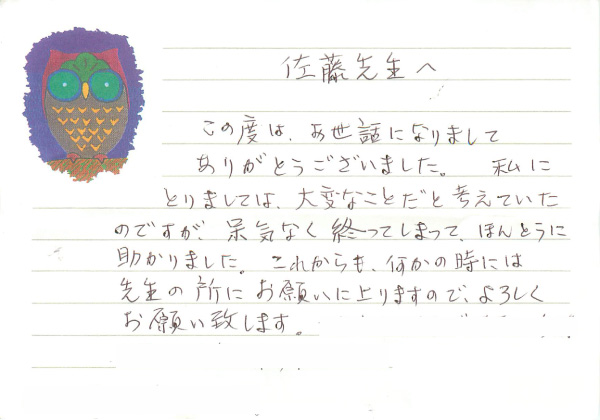 佐藤先生へ
この度は、お世話になりまして
ありがとうございました。 私に
とりましては、大変なことだと考えていた
のですが、呆気なく終ってしまって、ほんとうに
助かりました。これからも、何かの時には
先生の所にお願いに上りますので、よろしく
お願い致します。